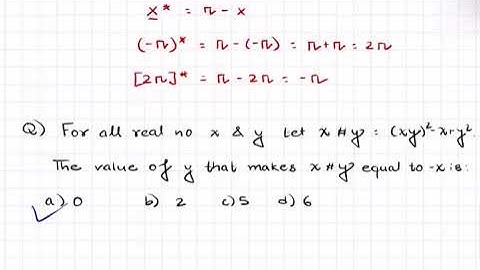 x* = π - x
(-π)* = π - (-π) = π + π = 2π
[2π]* = π - 2π = -π
Q) For all real no x & y Let x # y = (xy)² - x + y².
The value of y that makes x # y equal to -x is:
a) 0 b) 2 c) 5 d) 6